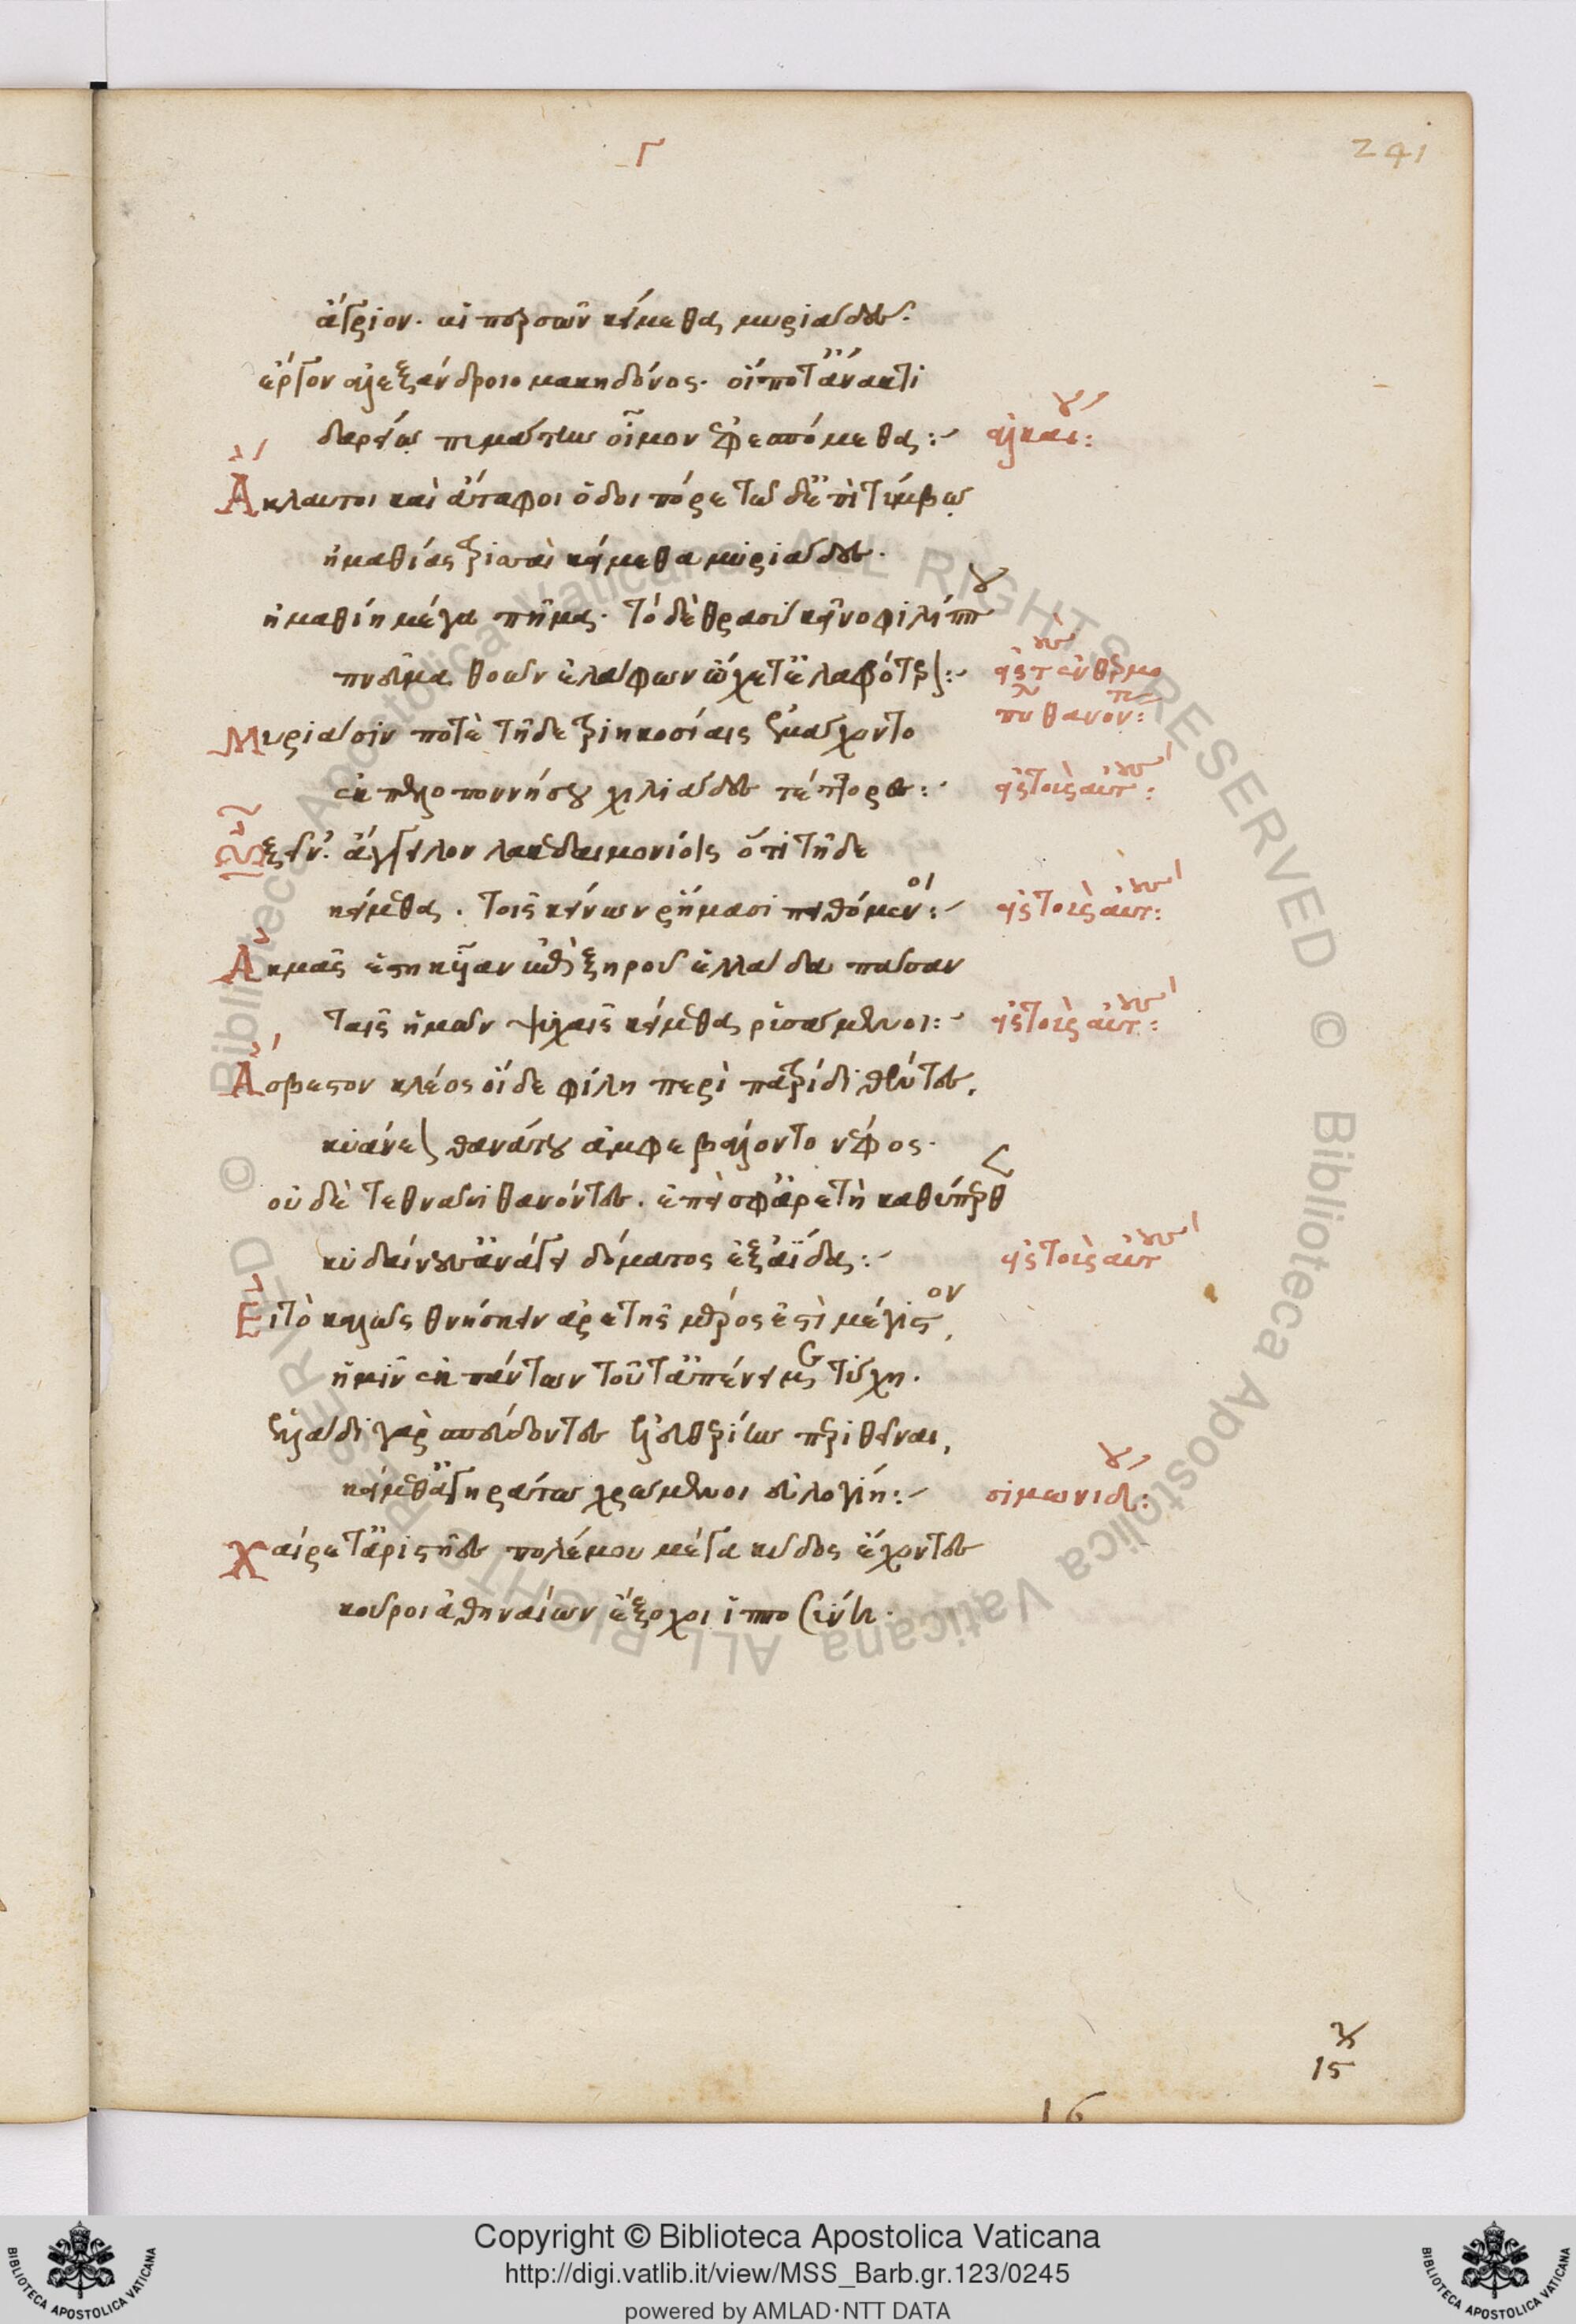 Γ
241
ἄγριον. αἱ περσῶν κείμεθα μυριάδες.
ἔργον ἀλεξάνδροιο μακηδόνος. οἵ ποτ' ἄνακτι
δαρείῳ πυμάτην οἶμον ἐφεσπόμεθα:
ἀλκαίου:
Ἄκλαυτοι καὶ ἄταφοι ὁδοιπόρε τῷδ' ἐπὶ τύμβῳ
ἠμαθίας τρισσαὶ κείμεθα μυριάδες.
ἠμαθίη μέγα πῆμα. τὸ δὲ θρασὺ κεῖνο φιλίππου
πνεῦμα θοῶν ἐλάφων ᾤχετ' ἐλαφρότερον:
εἰς τῶν ἐν θερμο
πυ θανόντων:
Μυριάσιν ποτὲ τῇδε τριηκοσίαις ἐμάχοντο
ἐκ πελοποννήσου χιλιάδες τέτορες:
εἰς τοὺς αὐτούς:
Ὦ ξεῖν' ἄγγειλον λακεδαιμονίοις ὅτι τῇδε
κείμεθα. τοῖς κείνων ῥήμασι πειθόμενοι:
εἰς τοὺς αὐτούς:
Ἀκμᾶς ἑστηκυῖαν ἐπὶ ξηροῦ ἑλλάδα πᾶσαν
ταῖς ἡμῶν ψυχαῖς κείμεθα ῥυσάμενοι:
εἰς τοὺς αὐτούς:
Ἄσβεστον κλέος οἵδε φίλη περὶ πατρίδι θέντες,
κυάνεον θανάτου ἀμφεβάλοντο νέφος.
οὐδὲ τεθνᾶσι θανόντες. ἐπεί σφ' ἀρετὴ καθύπερθε
κυδαίνουσ' ἀνάγει δώματος ἐξ ἀΐδα:
εἰς τοὺς αὐτούς
Εἰ τὸ καλῶς θνήσκειν ἀρετῆς μέρος ἐστὶ μέγιστον,
ἡμῖν ἐκ πάντων τοῦτ' ἀπένειμε τύχη.
ἑλλάδι γὰρ σπεύδοντες ἐλευθερίην περιθεῖναι,
κείμεθ' ἀγηράτῳ χρώμενοι εὐλογίῃ:
σιμωνίδου:
Χαίρετ' ἀριστῆες πολέμου μέγα κῦδος ἔχοντες
κοῦροι ἀθηναίων ἔξοχοι ἱπποσύνῃ.
15
16
Copyright © Biblioteca Apostolica Vaticana
http://digi.vatlib.it/view/MSS_Barb.gr.123/0245
powered by AMLAD·NTT DATA